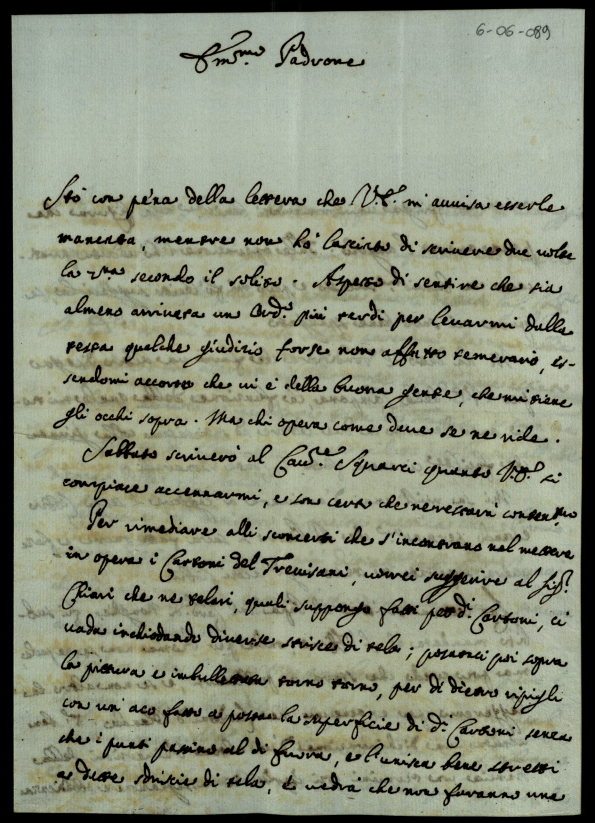 6-06-089
Em.mo Padrone
Stò con pena della lettera che V.E. mi avvisa esserle
mancata, mentre non hò lasciato di scrivere due volte
la 7mna secondo il solito. Aspetto di sentire che sia
almeno arrivata un Ord.o più tardi per levarmi dalla
testa qualche giudizio forse non affatto temerario, es-
sendomi accorto che vi è della buona gente, che mi tiene
gli occhi sopra. Ma chi opera come deve se ne ride.
Sabbato scriverò al Cav.re Squarci quanto V.E. si
compiace accennarmi, e son certo che ne resterà conten.mo
Per rimediare alli sconcerti che s'incontrano nel mettere
in opera i Cartoni del Trevisani, vorrei suggerire al Sig.r
Chiari che ne telari, quali suppongo fatti per d.i Cartoni, ci
vada inchiodando diverse strisce di tela; postaci poi sopra
la pittura e imbullettata torno torno, per di dietro ripigli
con un' aco fatto a posta la superficie di d.i Cartoni senza
che i punti passino al di fuora, e l'unisca bene stretti
a dette strisce di tela, e vedrà che non faranno una